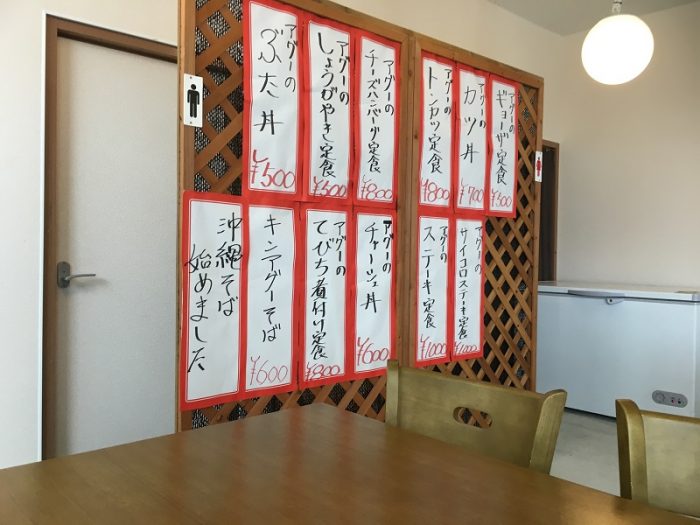 アグーの
ぶた丼
¥500
アグーの
しょうがやき定食
¥500
アグーの
チーズハンバーグ定食
¥800
アグーの
トンカツ定食
¥800
アグーの
カツ丼
¥700
アグーの
ギョーザ定食
¥500
沖縄そば
始めました
キンアグーそば
¥600
アグーの
てびち煮付け定食
¥800
アグーの
チャーシュ丼
¥600
アグーの
ステーキ定食
¥1000
アグーの
サイコロステーキ定食
¥1000